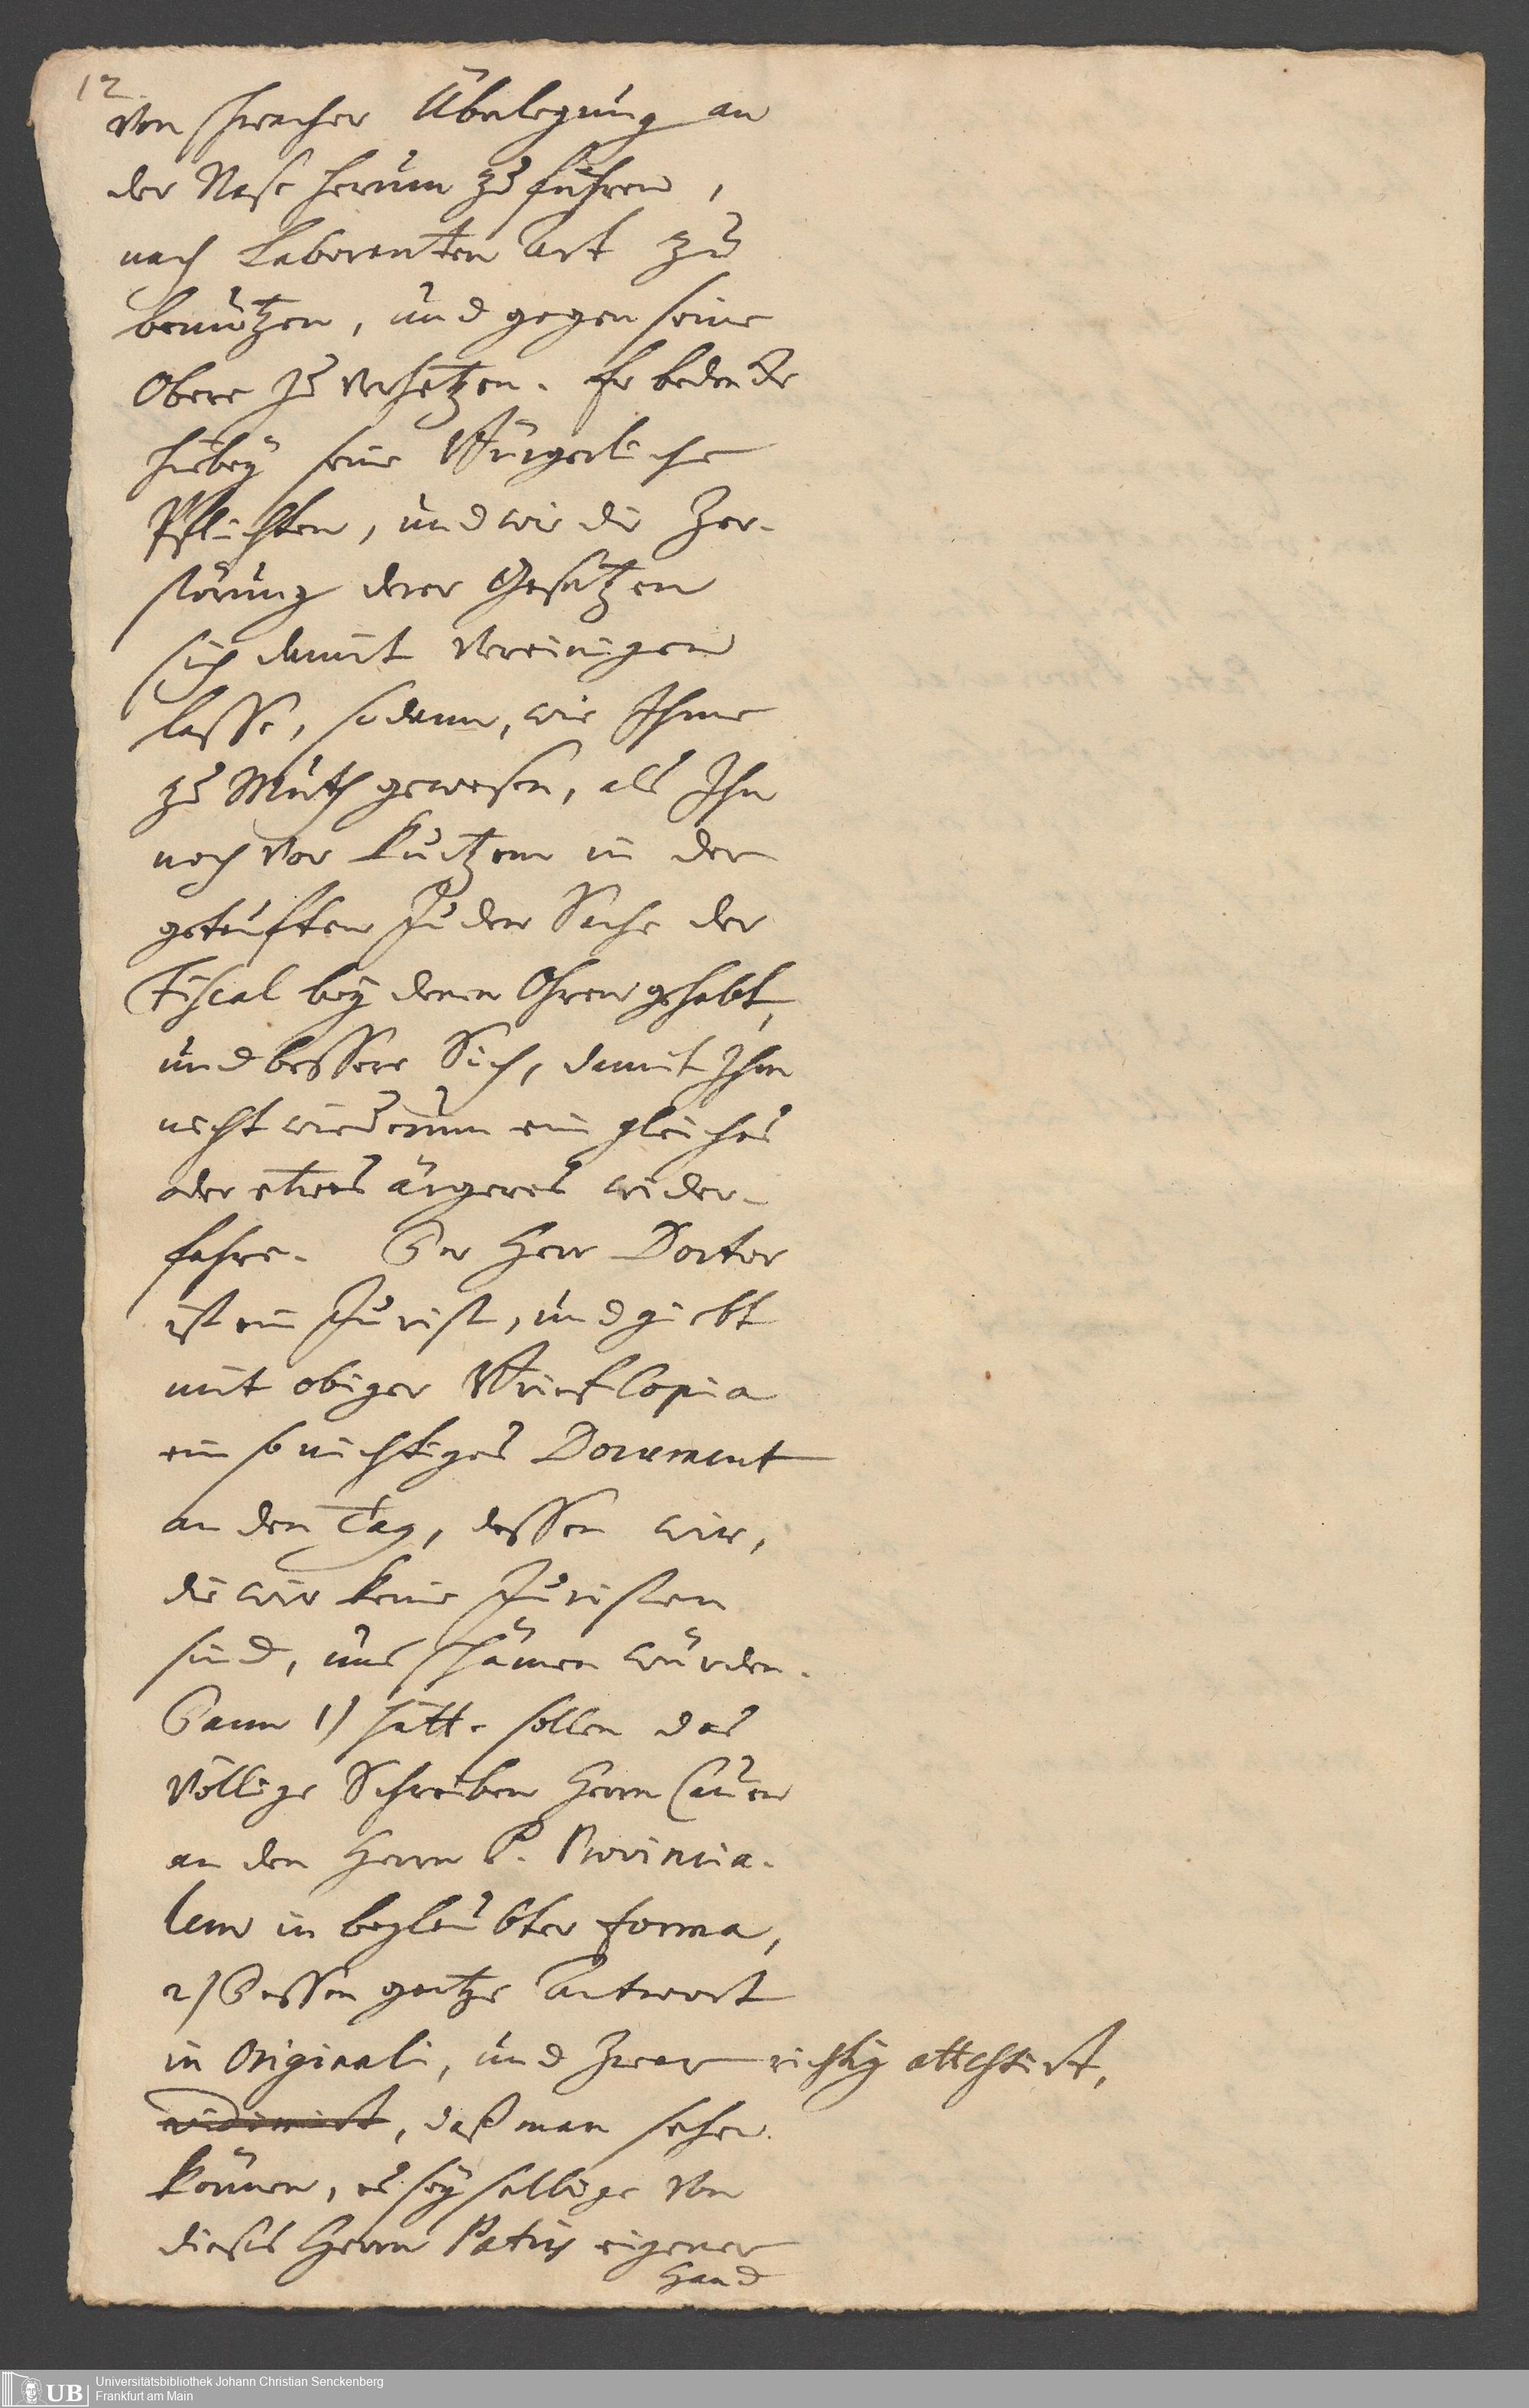 12.
von schwacher Überlegung an
der Nase herum zu führen,
nach Laboranten Art zu
benutzen, und gegen seine
Obere zu verhetzen. Er bedencke
hiebey seine Bürgerliche
Pflichten, und wie die Zer-
störung derer Gesätzen
sich damit vereinigen
lasse, sodann, wie Ihme
zu Muth gewesen, als Ihn
noch vor kurtzem in der
getaufften Juden Sache der
Fiscal bey denen Ohren gehabt,
und bessere Sich, damit Ihm
nicht wiederum ein gleiches
oder etwas ärgeres wieder-
fahre. Der Herr Doctor
ist ein Jurist, und giebt
mit obiger Brief Copia
ein so nichtiges Document
an den Tag, dessen wir,
die wir keine Juristen
sind, uns schämen würden.
Dann 1) hätte sollen das
völlige Schreiben Herrn
an den Herrn P. Provincia-
lem in beglaubter forma,
2) Dessen gantze Antwort
in Originali, und zwar richtig attestirt,
vidimirt, daß man sehen
können, es sey selbige von
dieses Herrn Patris eigener
Hand
Universitätsbibliothek Johann Christian Senckenberg
UB Frankfurt am Main